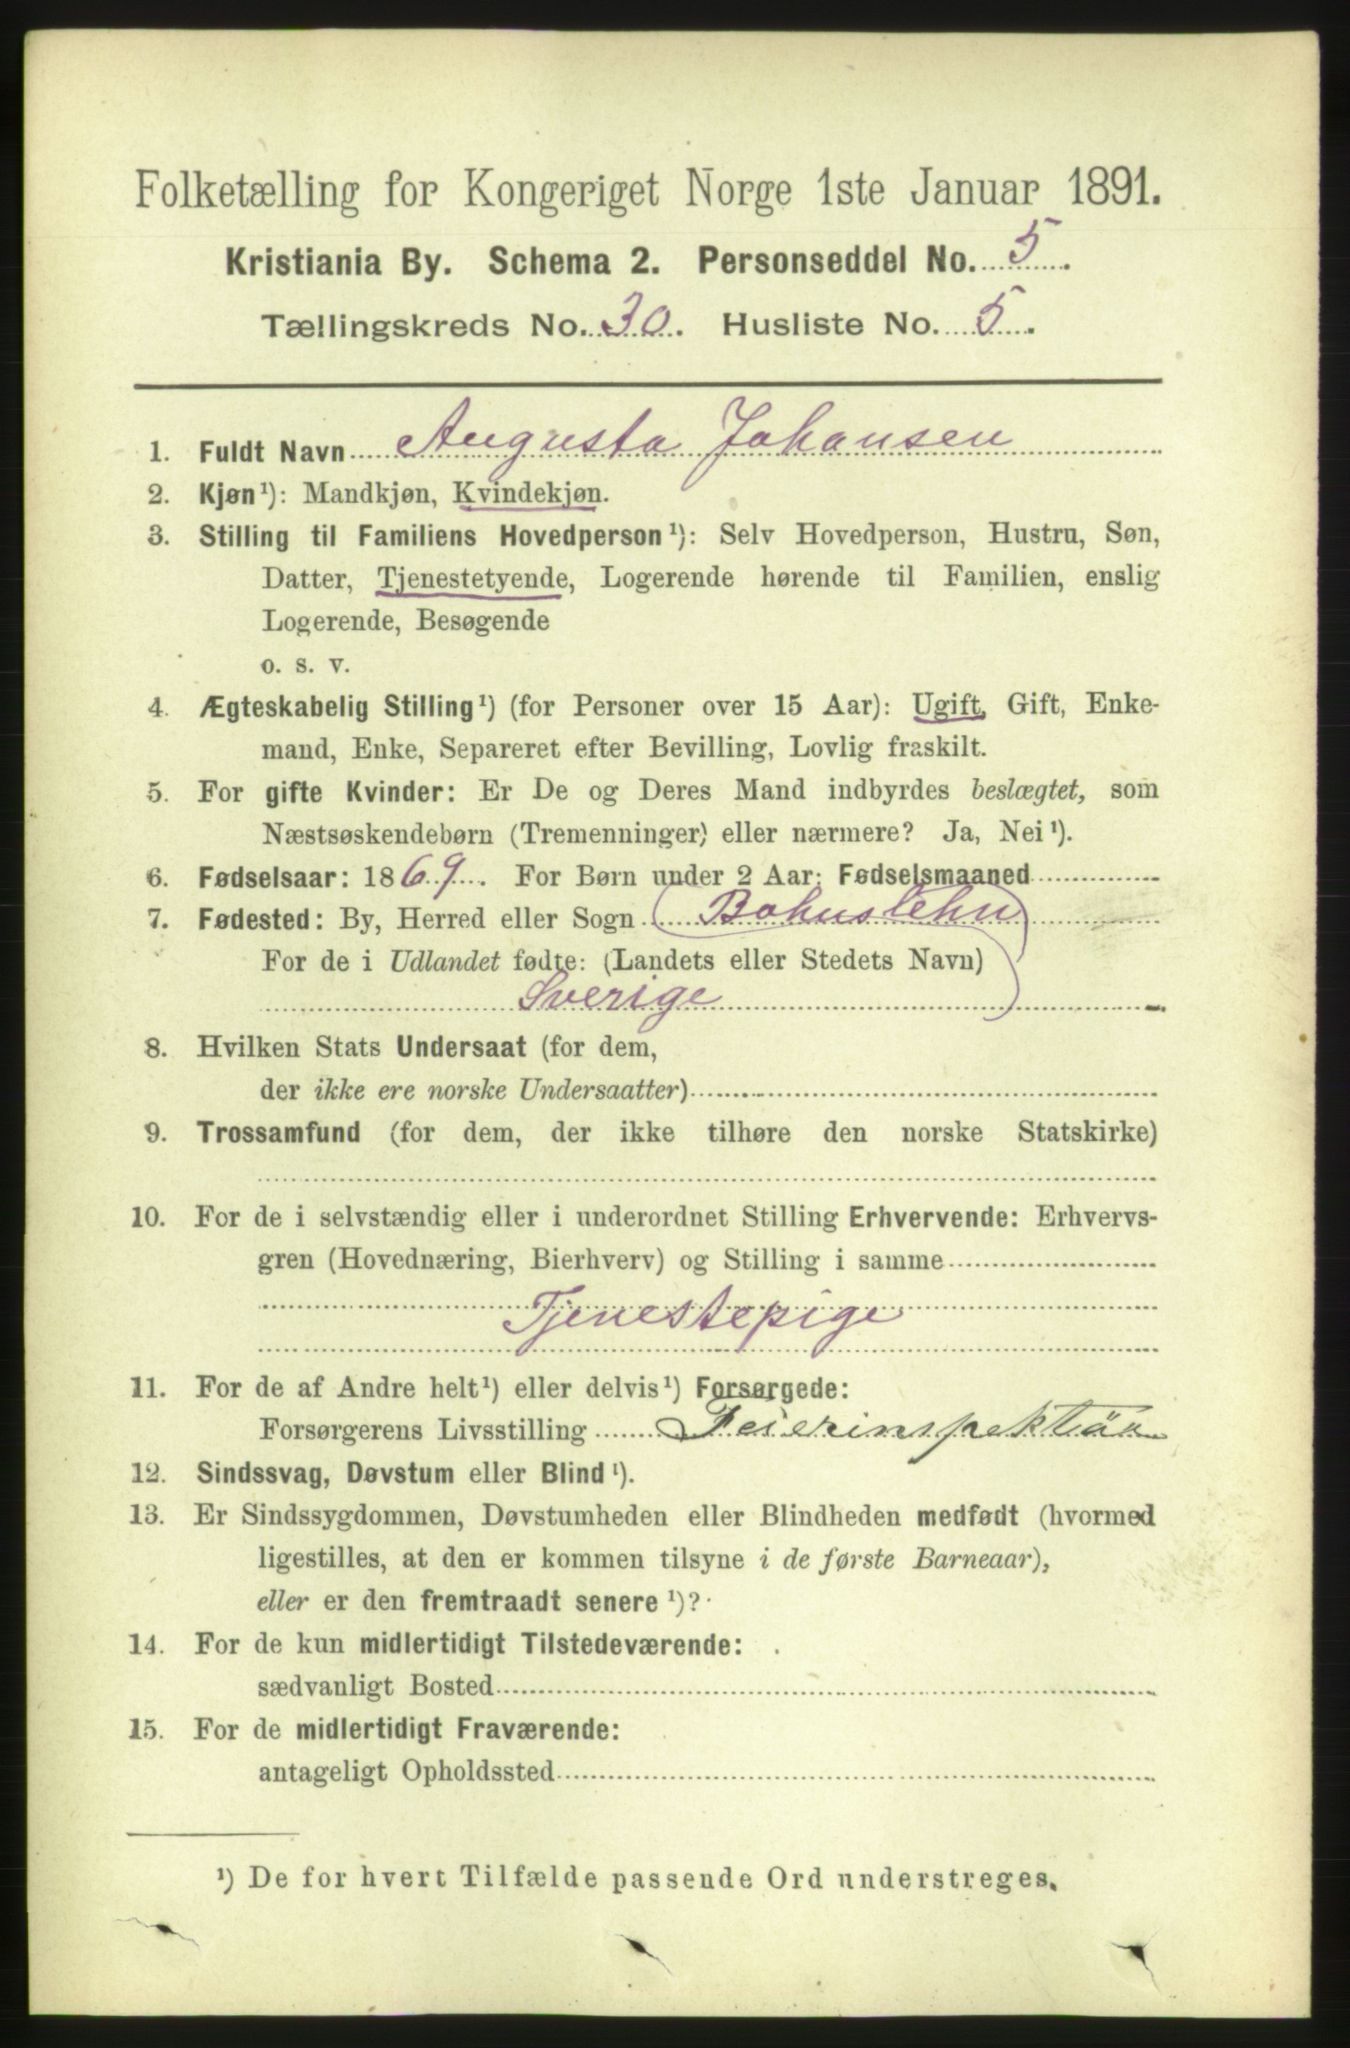 Folketælling for Kongeriget Norge 1ste Januar 1891.
Kristiania By. Schema 2. Personseddel No. 5.
Tællingskreds No. 30. Husliste No. 5.
1. Fuldt Navn Augusta Johansen
2. Kjøn¹): Mandkjøn, Kvindekjøn.
3. Stilling til Familiens Hovedperson¹): Selv Hovedperson, Hustru, Søn,
Datter, Tjenestetyende, Logerende hørende til Familien, enslig
Logerende, Besøgende
o. s. v.
4. Ægteskabelig Stilling¹) (for Personer over 15 Aar): Ugift, Gift, Enke-
mand, Enke, Separeret efter Bevilling, Lovlig fraskilt.
5. For gifte Kvinder: Er De og Deres Mand indbyrdes beslægtet, som
Næstsøskendebørn (Tremenninger) eller nærmere? Ja, Nei¹).
6. Fødselsaar: 1869. For Børn under 2 Aar: Fødselsmaaned
7. Fødested: By, Herred eller Sogn (Bohuslehn)
For de i Udlandet fødte: (Landets eller Stedets Navn)
Sverige
8. Hvilken Stats Undersaat (for dem,
der ikke ere norske Undersaatter)
9. Trossamfund (for dem, der ikke tilhøre den norske Statskirke)
10. For de i selvstændig eller i underordnet Stilling Erhvervende: Erhvervs-
gren (Hovednæring, Bierhverv) og Stilling i samme
Tjenestepige
11. For de af Andre helt¹) eller delvis¹) Forsørgede:
Forsørgerens Livsstilling Feierinspektör
12. Sindssvag, Døvstum eller Blind¹).
13. Er Sindssygdommen, Døvstumheden eller Blindheden medfødt (hvormed
ligestilles, at den er kommen tilsyne i de første Barneaar),
eller er den fremtraadt senere¹)?
14. For de kun midlertidigt Tilstedeværende:
sædvanligt Bosted
15. For de midlertidigt Fraværende:
antageligt Opholdssted
¹) De for hvert Tilfælde passende Ord understreges.